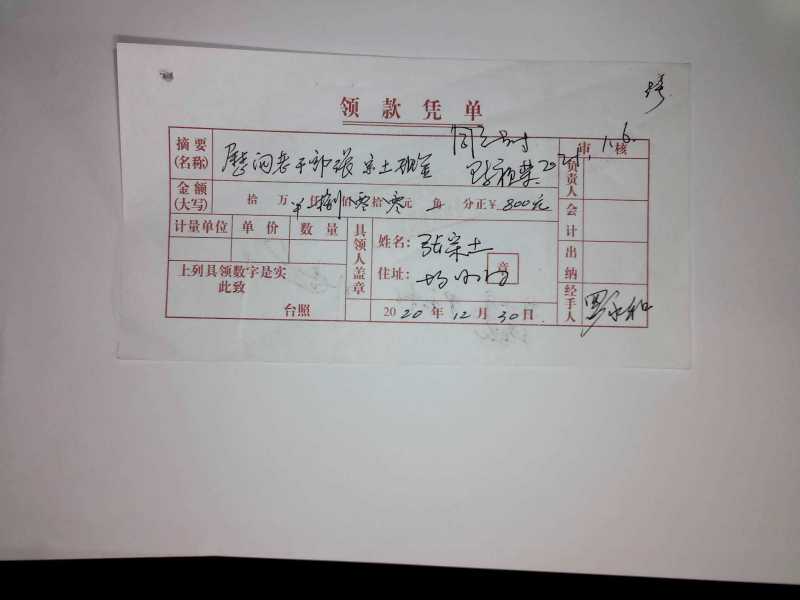 领款凭单
同意付
1.6.
摘要(名称) 慰问老干部张宗土现金 2021.
审核
金额(大写) 拾万¥仟捌佰零拾零元角分正¥800元
计量单位 单价 数量
具领人盖章
姓名:张宗土
住址:
章
上列具领数字是实
此致
台照
2020年12月30日
负责人
会计
出纳
经手人